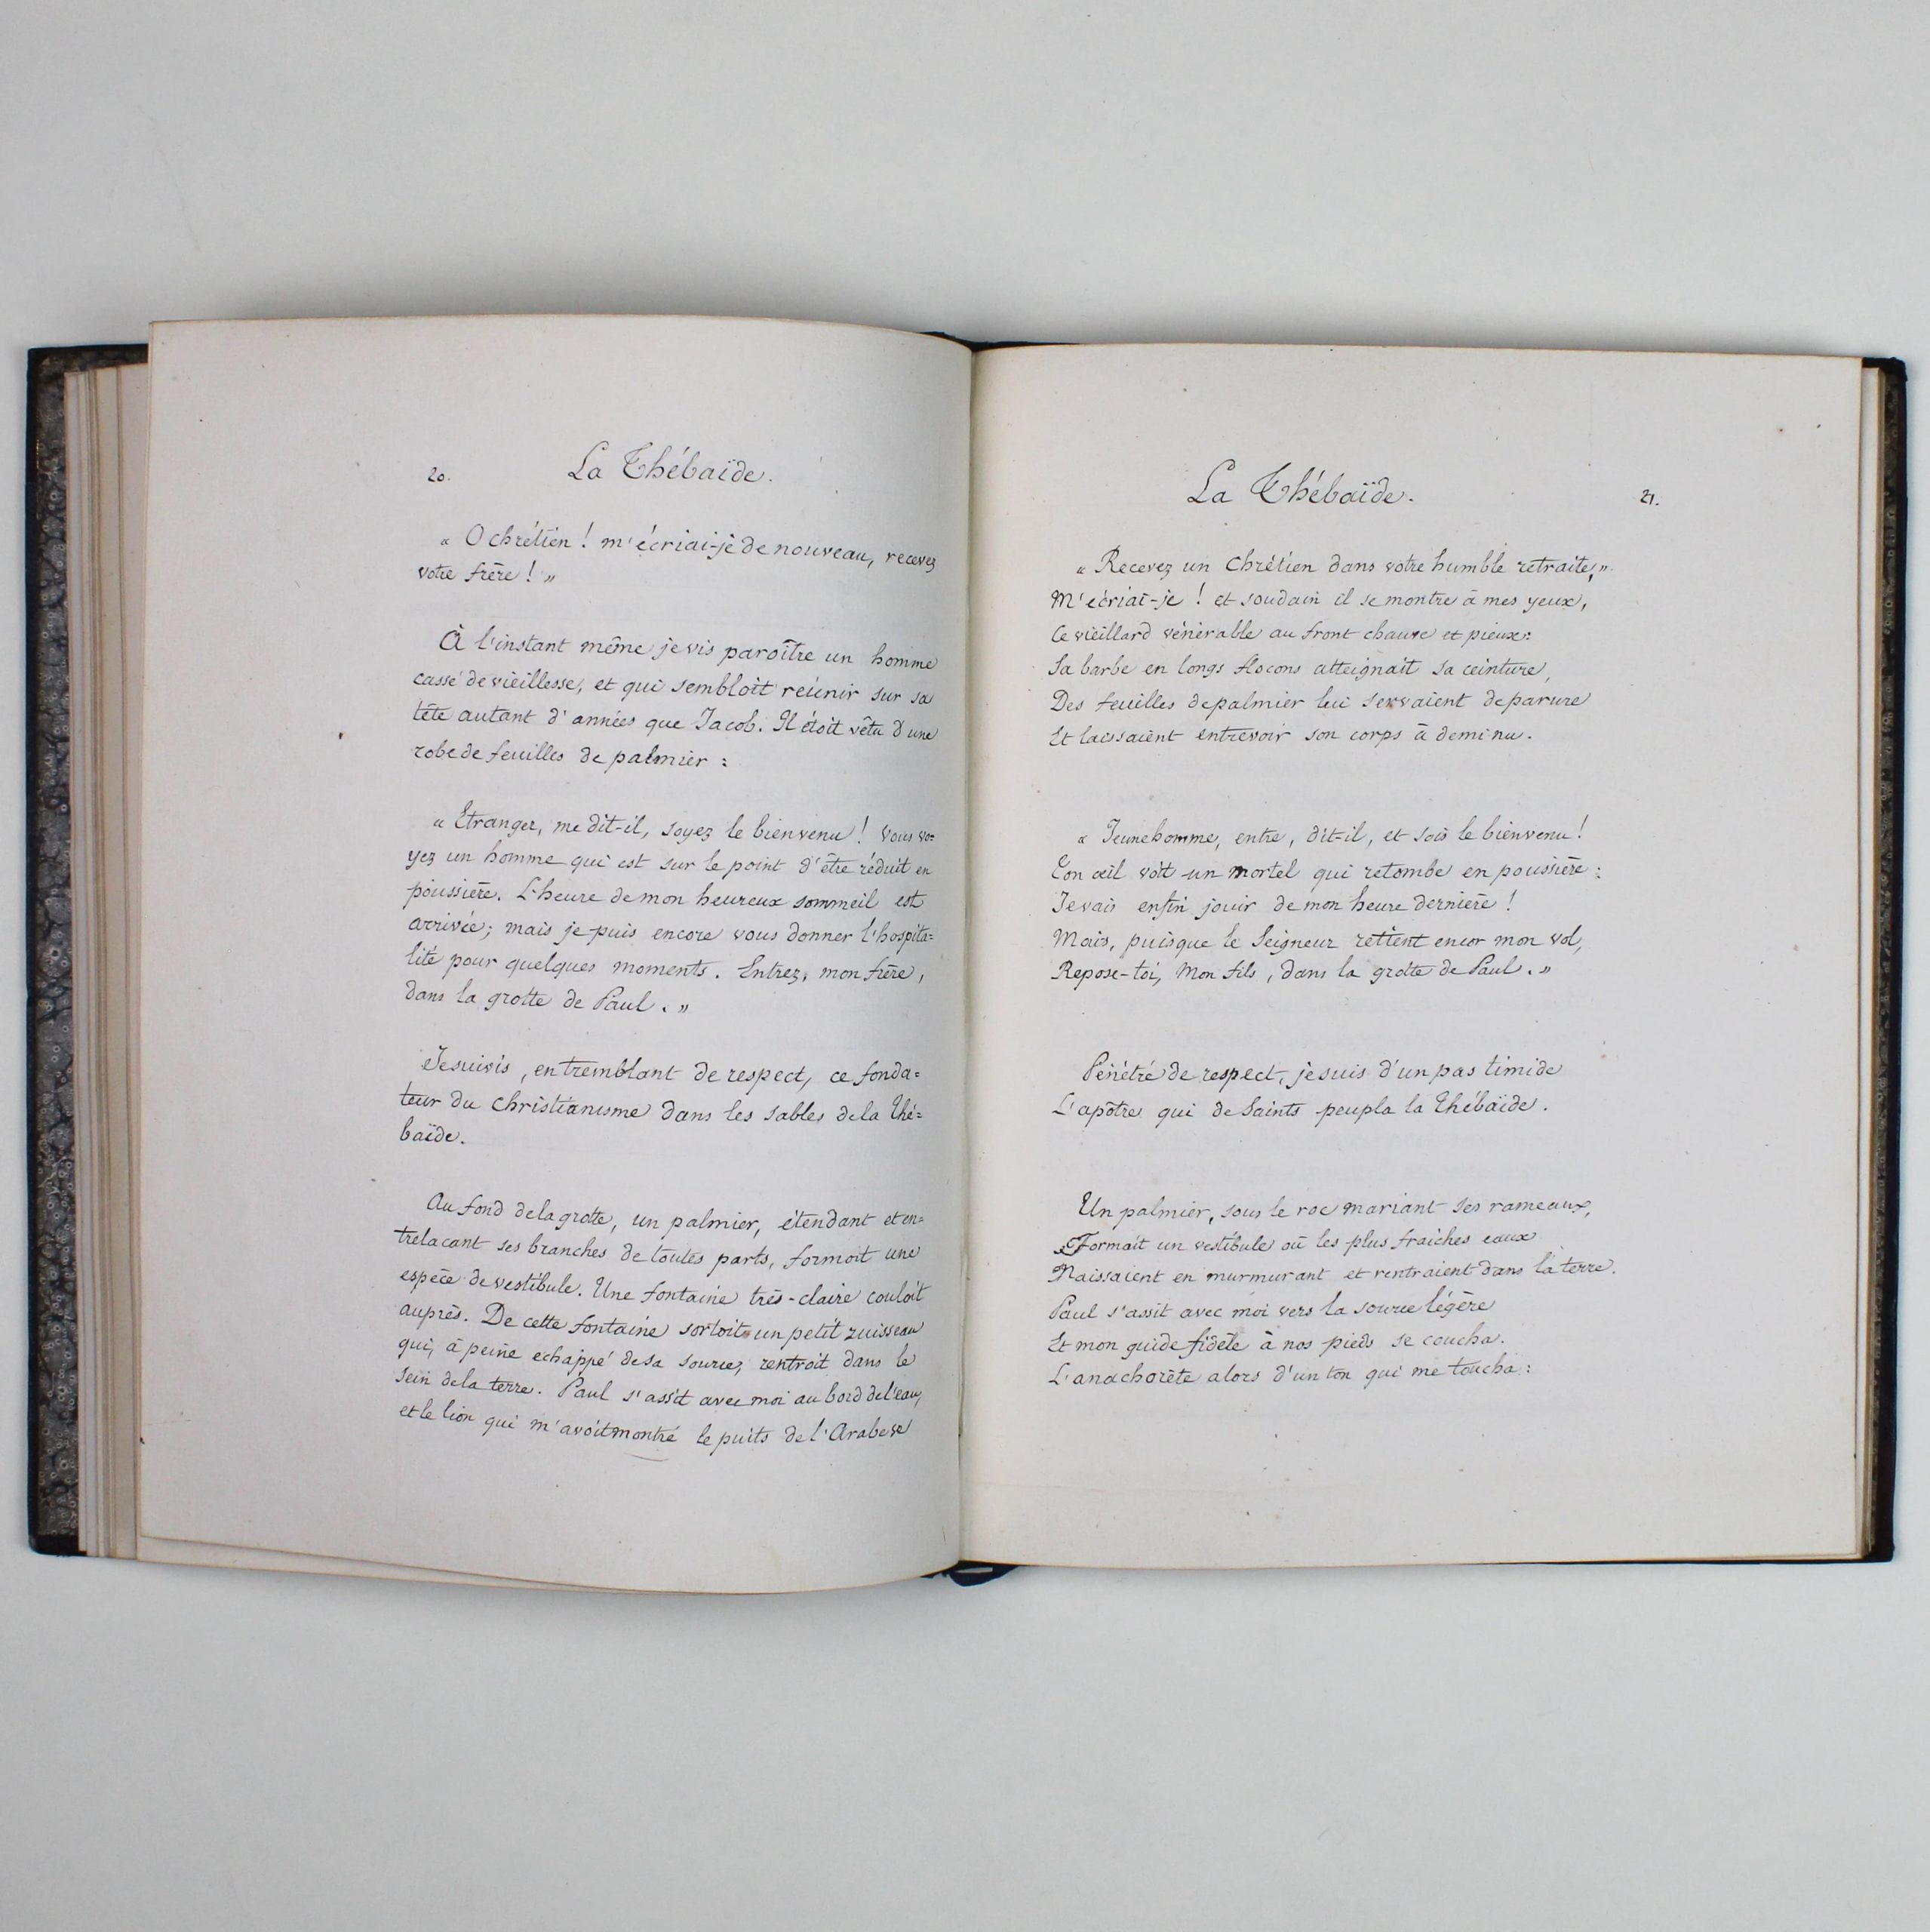 20.
La Thébaïde.
« O chrétien ! m'écriai-je de nouveau, recevez
votre frère ! »
À l'instant même je vis paroître un homme
cassé de vieillesse, et qui sembloit réunir sur sa
tête autant d'années que Jacob. Il étoit vêtu d'une
robe de feuilles de palmier :
« Etranger, me dit-il, soyez le bienvenu ! vous vo=
yez un homme qui est sur le point d'être réduit en
poussière. L'heure de mon heureux sommeil est
arrivée ; mais je puis encore vous donner l'hospita=
lité pour quelques moments. Entrez, mon frère,
dans la grotte de Paul. »
Je suivis, en tremblant de respect, ce fonda=
teur du christianisme dans les sables de la Thé=
baïde.
Au fond de la grotte, un palmier, étendant et en=
trelacant ses branches de toutes parts, formoit une
espèce de vestibule. Une fontaine très-claire couloit
auprès. De cette fontaine sortoit un petit ruisseau
qui, à peine echappé de sa source, rentroit dans le
sein de la terre. Paul s'assit avec moi au bord de l'eau,
et le lion qui m'avoit montré le puits de l'Arabe se
La Thébaïde.
21.
« Recevez un Chrétien dans votre humble retraite, »
M'écriai-je ! et soudain il se montre à mes yeux,
Ce vieillard vénérable au front chauve et pieux :
Sa barbe en longs flocons atteignait sa ceinture,
Des feuilles de palmier lui servaient de parure
Et laissaient entrevoir son corps à demi nu.
« Jeune homme, entre, dit-il, et sois le bienvenu !
Ton œil voit un mortel qui retombe en poussière :
Je vais enfin jouir de mon heure dernière !
Mais, puisque le Seigneur retient encor mon vol,
Repose-toi, Mon fils, dans la grotte de Paul. »
Pénétré de respect, je suis d'un pas timide
L'apôtre qui de Saints peupla la Thébaïde.
Un palmier, sous le roc mariant ses rameaux,
Formait un vestibule où les plus fraiches eaux
Naissaient en murmurant et rentraient dans la terre.
Paul s'assit avec moi vers la source légère
Et mon guide fidèle à nos pieds se coucha.
L'anachorète alors d'un ton qui me toucha :